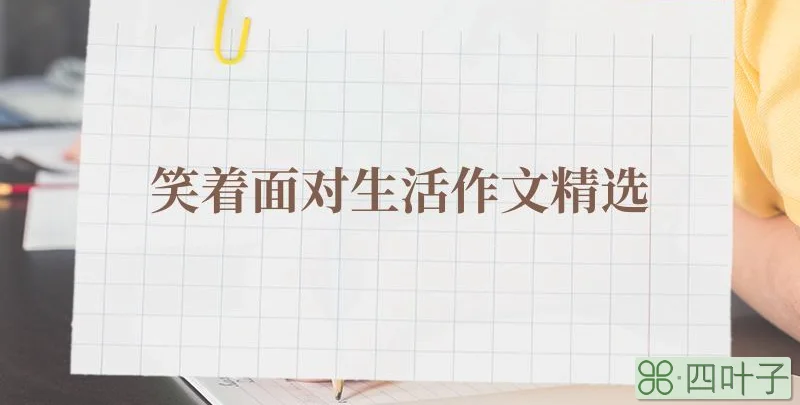 笑着面对生活作文精选
四叶子